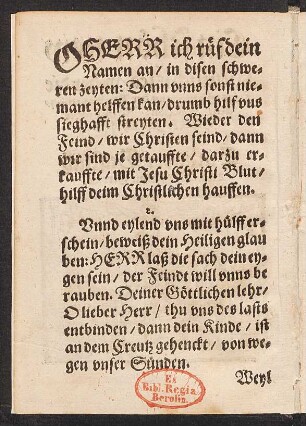 O HERR ich rüf dein
Namen an/ in disen schwe-
ren zeyten: Dann vnns sonst nie-
mant helffen kan/ drumb hilf vns
sieghafft streyten. Wieder den
Feind/ wir Christen seind/ dann
wir sind je getauffte/ darzu er-
kauffte/ mit Jesu Christi Blut/
hilff deim Christlichen hauffen.
2.
Vnnd eylend vns mit hülff er-
schein/ beweiß dein Heiligen glau
ben: HERR laß die sach dein ey-
gen sein/ der Feindt will vnns be
rauben. Deiner Göttlichen lehr/
O lieber Herr/ thu vns des lasts
entbinden/ dann dein Kinde/ ist
an dem Creutz gehenckt/ von we-
gen vnser Sünden.
Weyl
Ex
Bibl. Regia
Berolin.